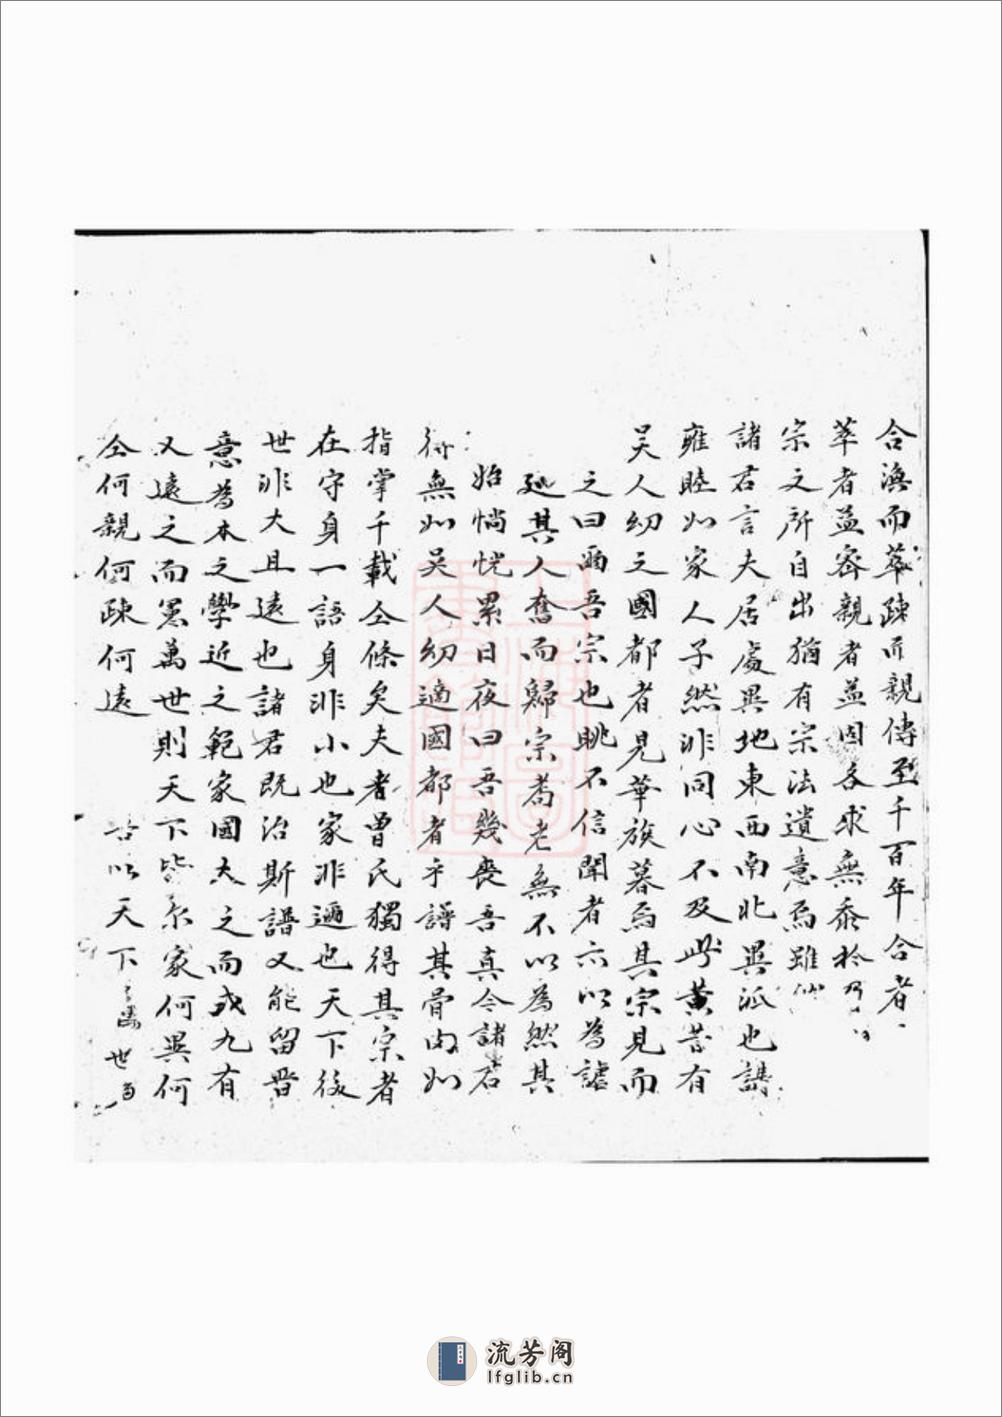 合渙而萃疎而親傳至千百年合者
萃者益密親者益固各求無忝於乃
宗之所自出猶有宗法遺意焉雖
諸君言夫居處異地東西南北異派也講
雍睦如家人子然非同心不及此黃昔有
吴人幼之國都者見華族暮焉其宗見而
之曰爾吾宗也眺不信聞者六以為謔
延其人奮而歸宗耆老無不以為然其
始惝恍累日夜曰吾幾喪吾真今諸君
得無如吴人幼適國都者乎譜其骨肉如
指掌千載仝條矣夫者曾氏獨得其宗者
在守身一語身非小也家非邇也天下後
世非大且遠也諸君既治斯譜又能留晋
意為本之學近之範家國大之而戎九有
又遠之而冪萬世則天下皆尔家何異何
仝何親何疎何遠 以天下 世
流芳阁
lfglib.cn